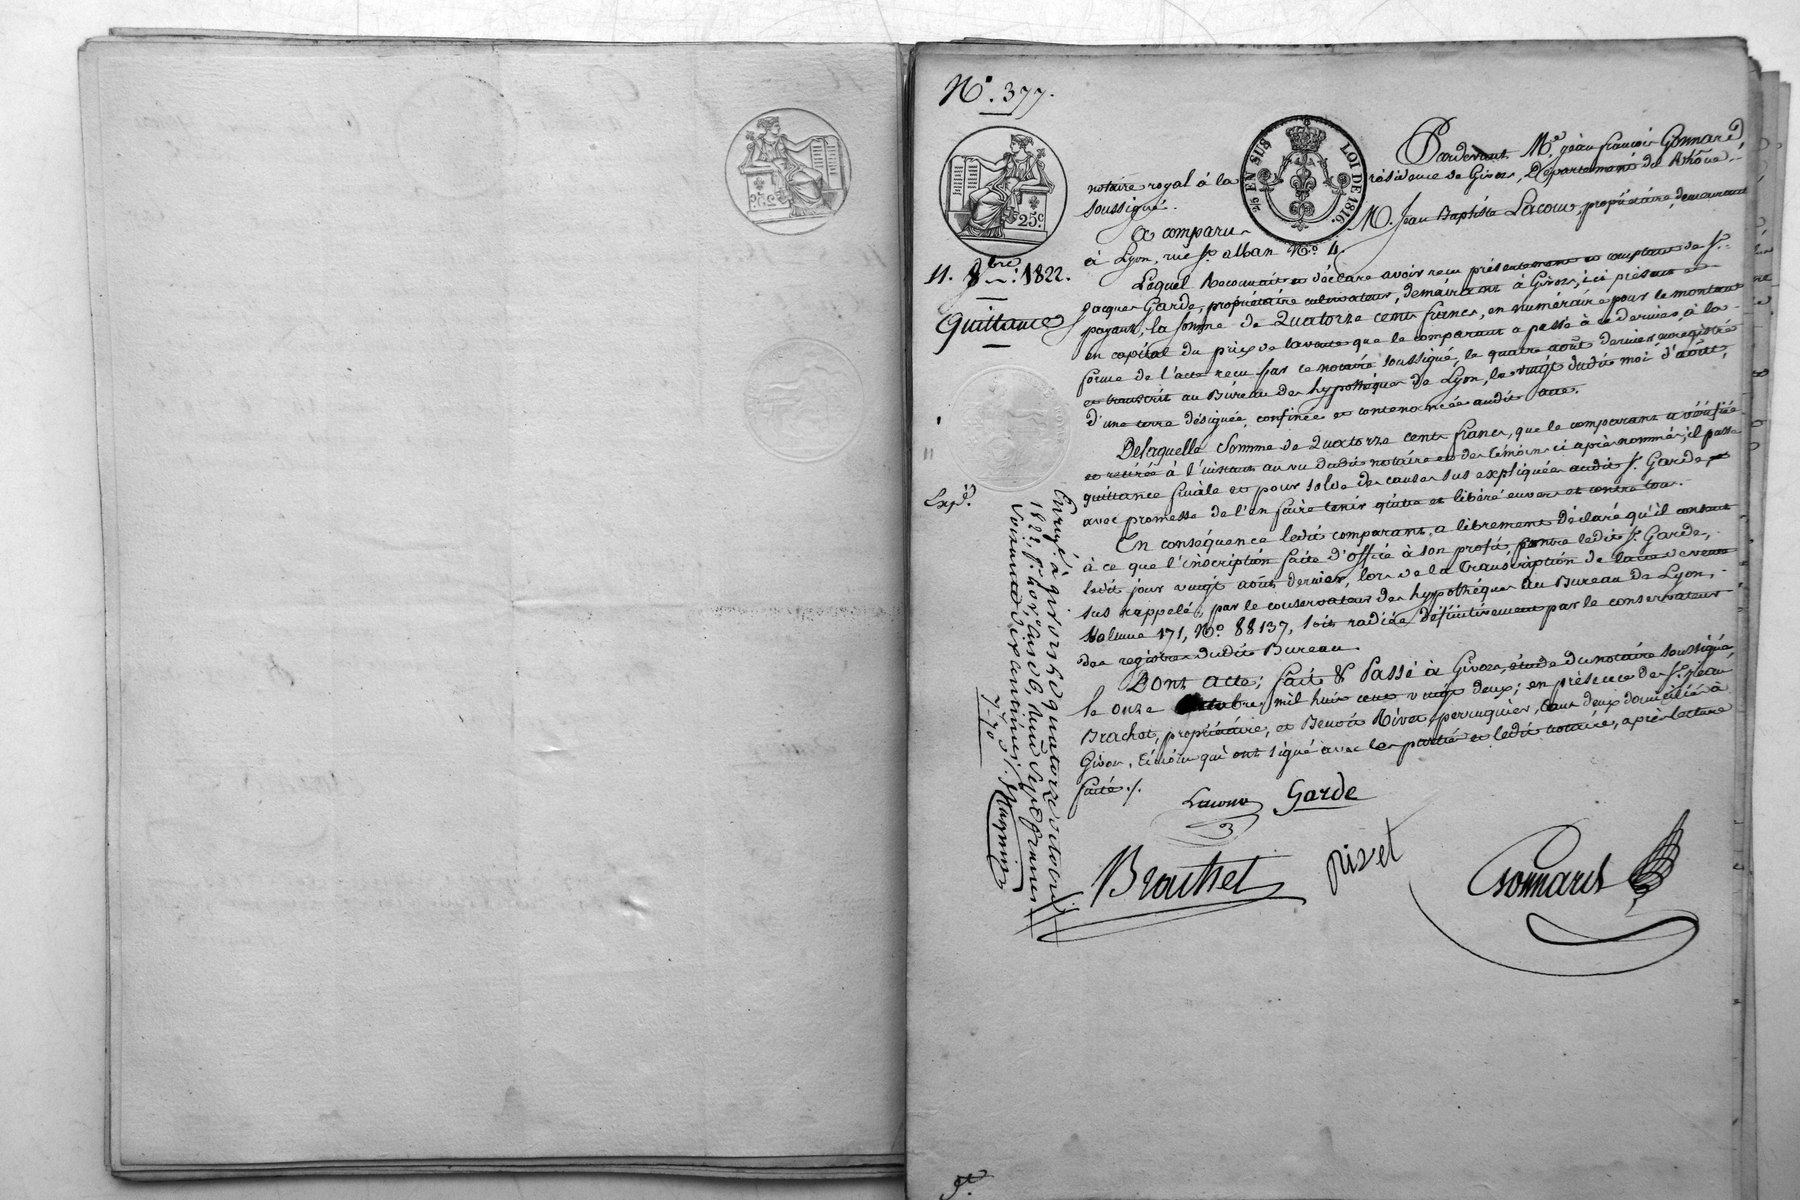 N.° 377.
25.c
26 EN SUS LOI DE 1816.
Pardevant M.e jean françois Gonnard
notaire royal à la résidence de Givors, Département du Rhône,
soussigné.
A comparu M. Jean Baptiste Lacour, propriétaire, demeurant
à Lyon, rue St. alban N.° 4.
11. 8.bre 1822.
Quittance
Lequel Reconnait et déclare avoir reçu présentement et comptant de Sr.
Jacques Garde, propriétaire cultivateur, demeurant à Givors, ici présent et
payant, la somme de Quatorze cents francs, en numéraire pour le montant
en capital du prix de la vente que le comparant a passé à ce dernier, à la
forme de l'acte reçu par ce notaire soussigné, le quatre août dernier enregistré
et transcrit au Bureau des hypothèques de Lyon, le vingt dudit moi d'août,
d'une terre désignée, confinée et contenancée audit acte.
Delaquelle Somme de Quatorze cents francs, que le comparant a vérifiée
et retirée à l'instant au vu dudit notaire et des témoins ci après nommés, il passe
quittance finale et pour solde des causes sus expliquées audit Sr. Garde
avec promesse de l'en faire tenir quitte et libéré envers et contre tous.
Exp.é
En conséquence ledit comparant, a librement déclaré qu'il consent
à ce que l'inscription faite d'office à son profit, contre ledit Sr. Garde,
ledit jour vingt août dernier, lors de la transcription de l'acte de vente
sus rappelé, par le conservateur des hypothèques au Bureau de Lyon,
Volume 171, N.° 88137, soit radiée définitivement par le conservateur
des registres dudit Bureau.
Dont acte; fait & Passé à Givors, étude du notaire soussigné,
le onze octobre mil huit cent vingt deux; en présence de Sr. Jean
Brachet, propriétaire, et Benoit Rivet, perruquier, tous deux domiciliés à
Givors, témoins qui ont signé avec les parties et ledit notaire, après lecture
faite ./.
Enregé à givors le quatorze octobre
1822, fo. Reçu sept francs
soixante dix centimes
7-70
Lacour Garde
Brachet rivet Gonnard